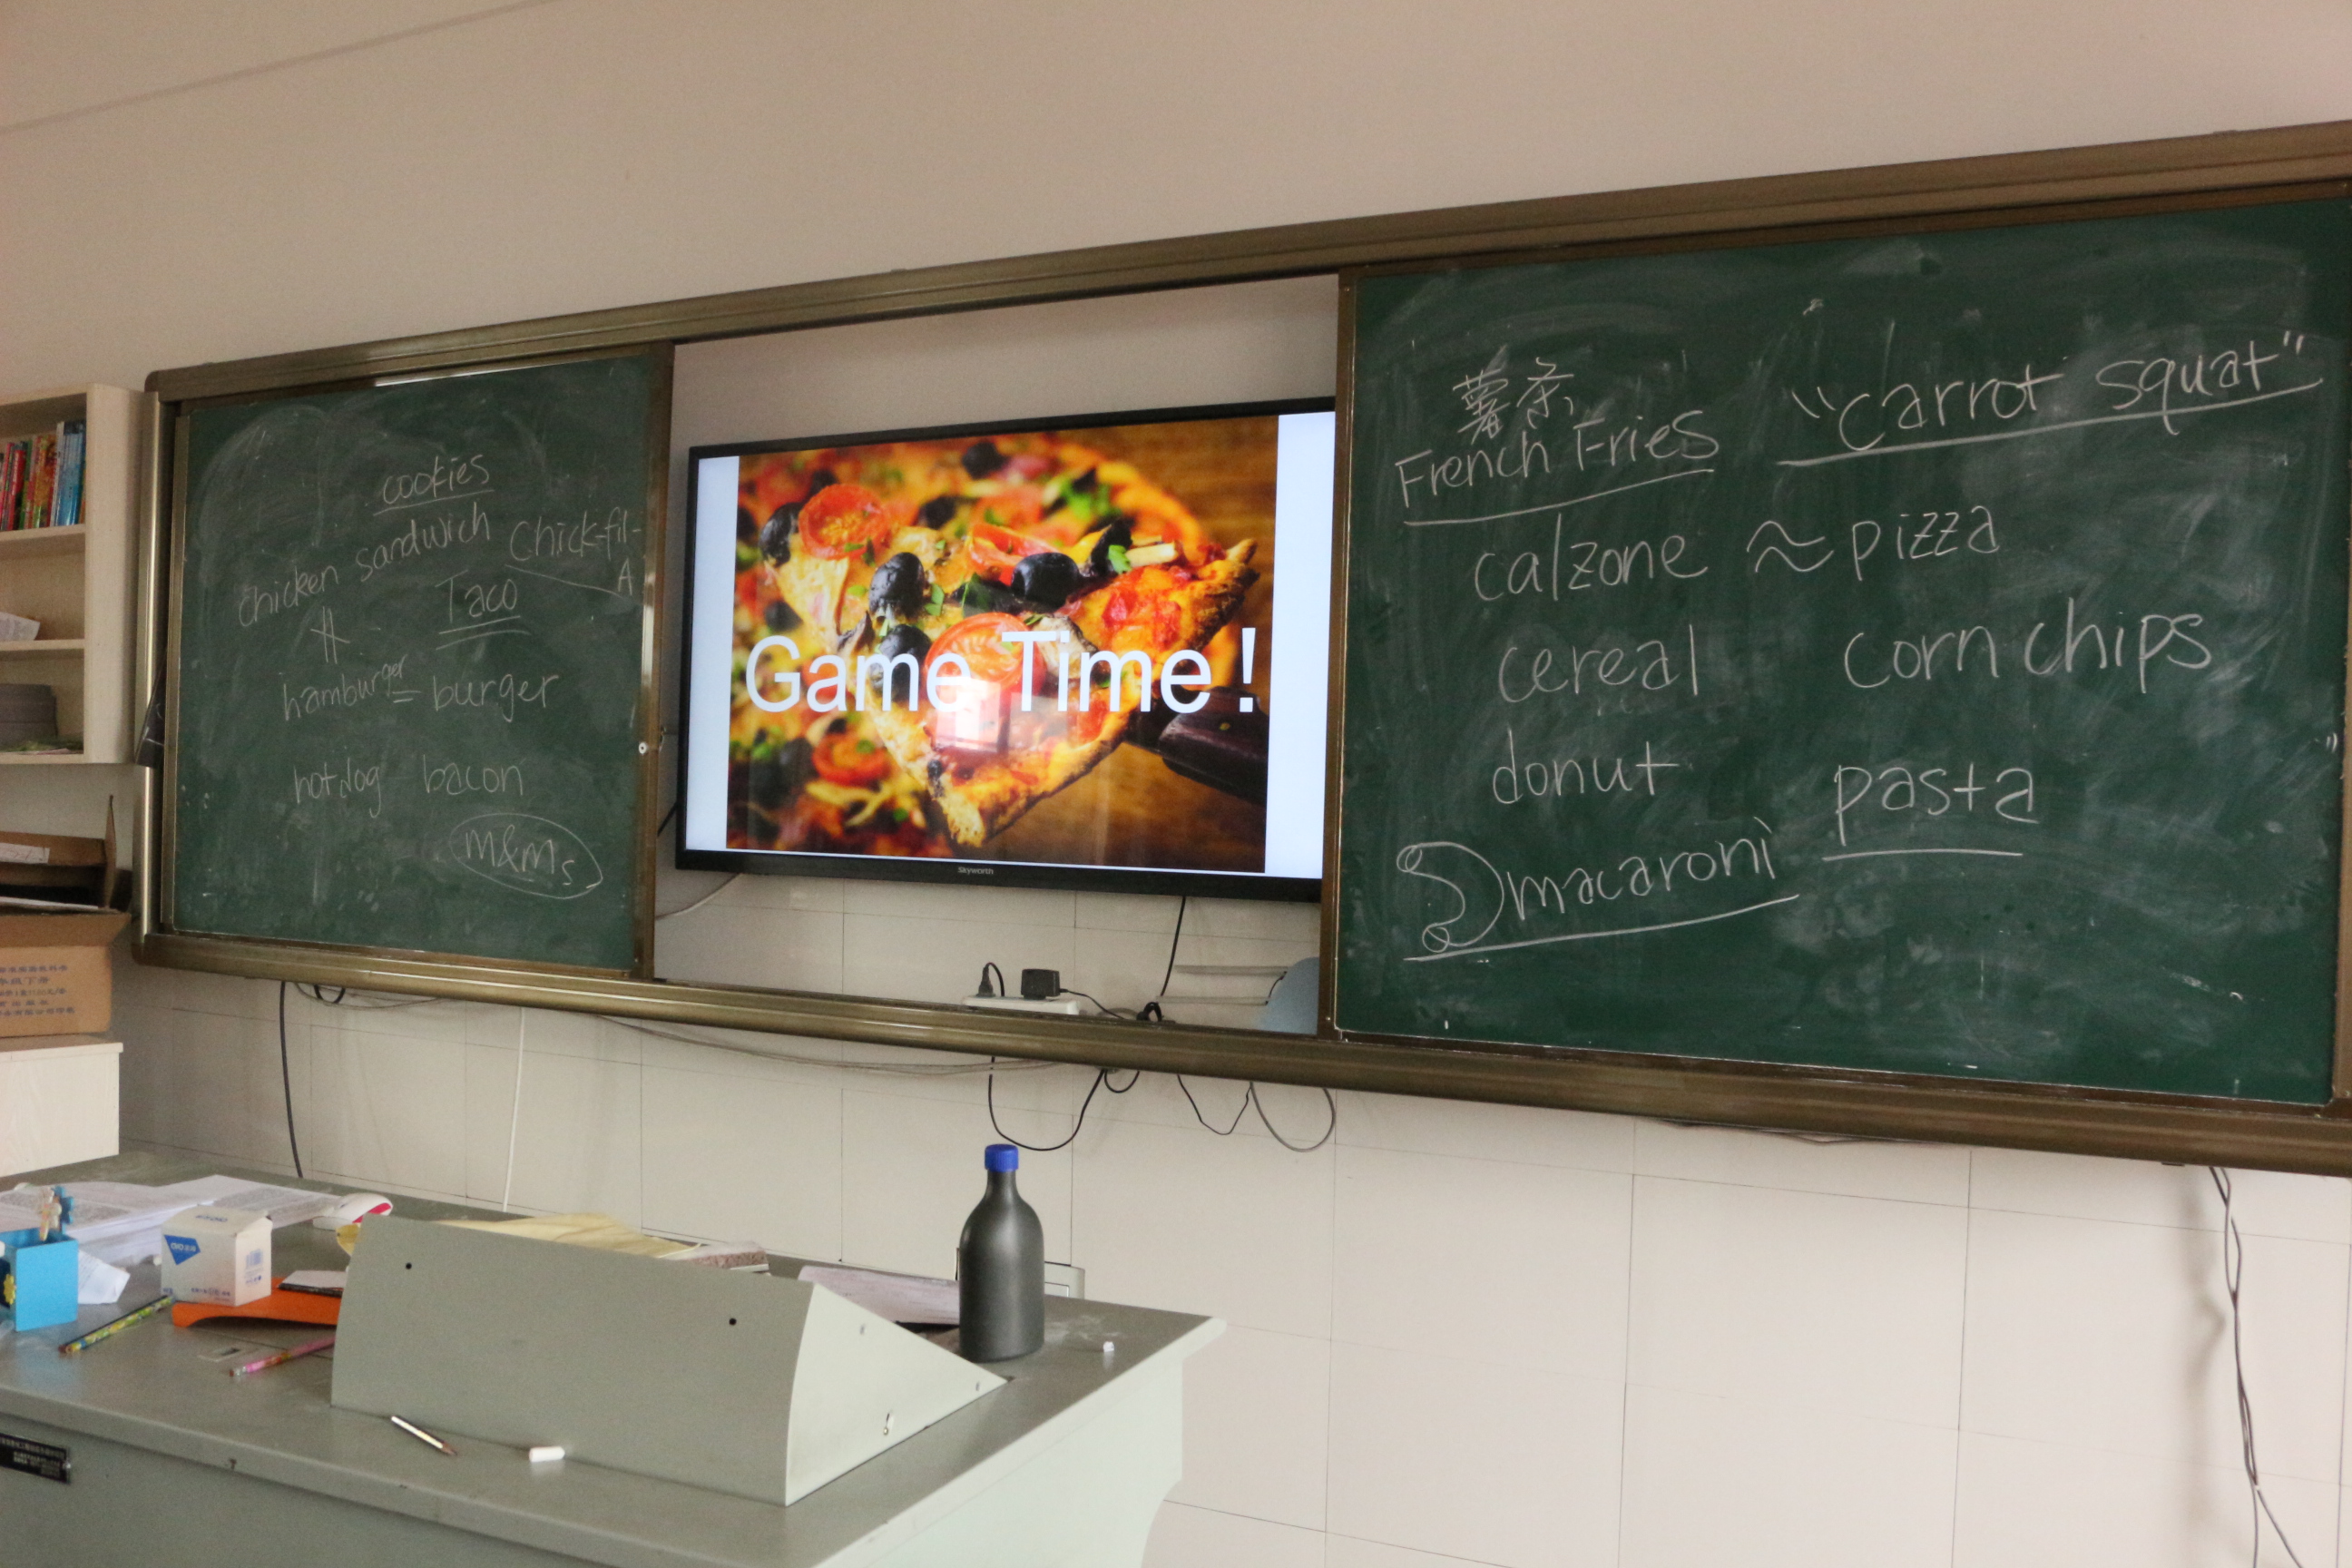 cookies
chicken sandwich Chick-fil-
A
Taco
hamburger = burger
hotdog bacon
M&Ms
Game Time!
Skyworth
薯条
French Fries "carrot squat"
calzone ≈ pizza
cereal corn chips
donut pasta
macaroni